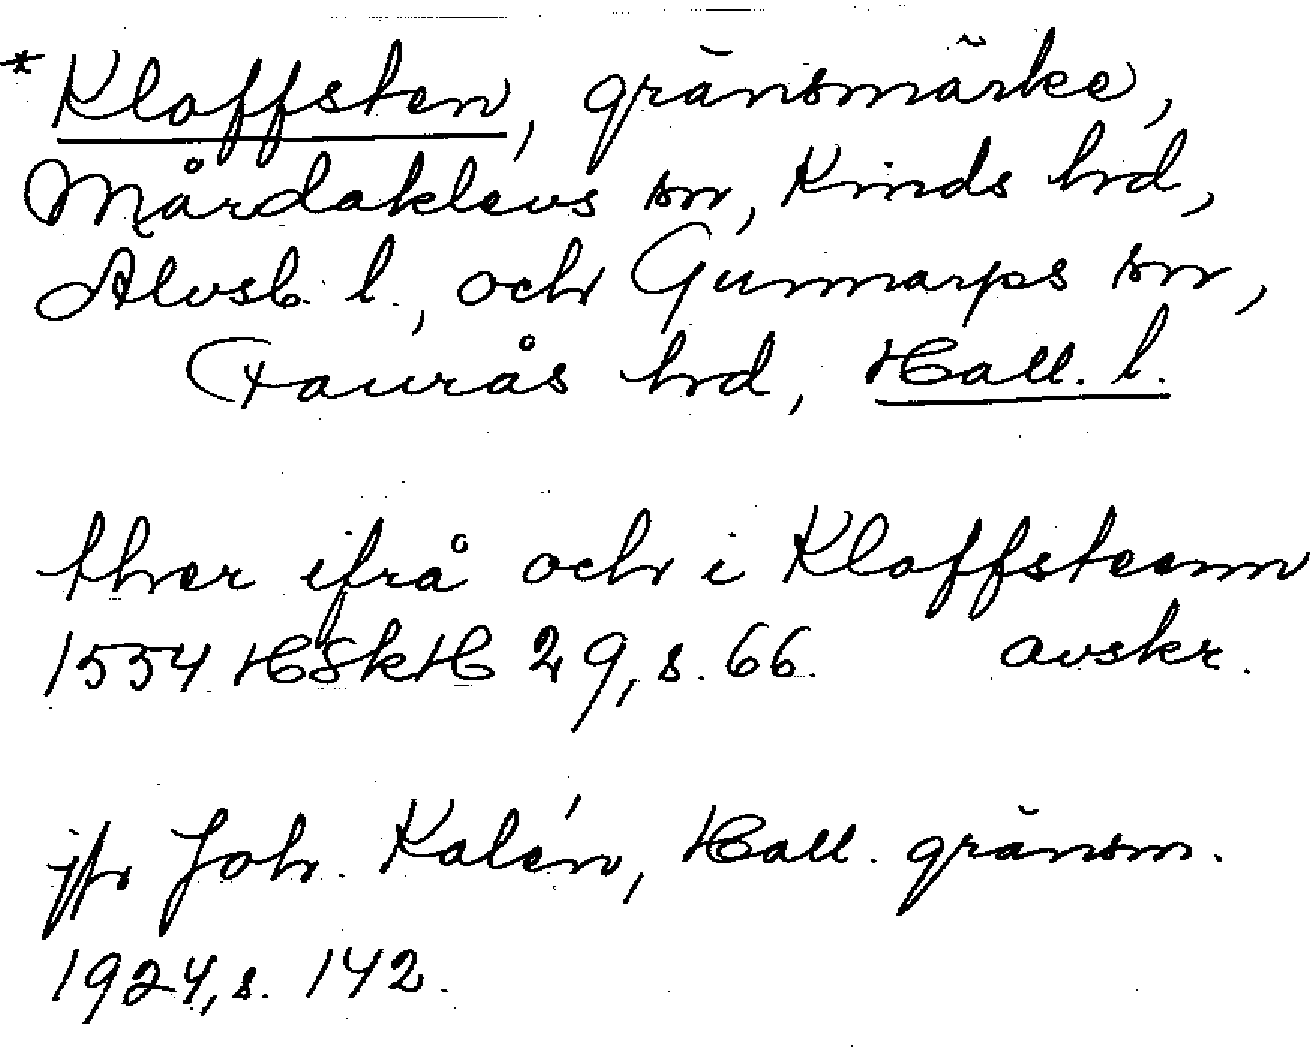 * Kloffsten, gränsmärke,
Mårdaklevs sn, Kinds hd,
Älvsb. l., och Gunnarps sn,
Faurås hd, Hall. l.
ther ifrå och i Kloffsteenn
1554 HSkH 29, s. 66. avskr.
jfr Joh. Kalén, Hall. gränsm.
1924, s. 142.